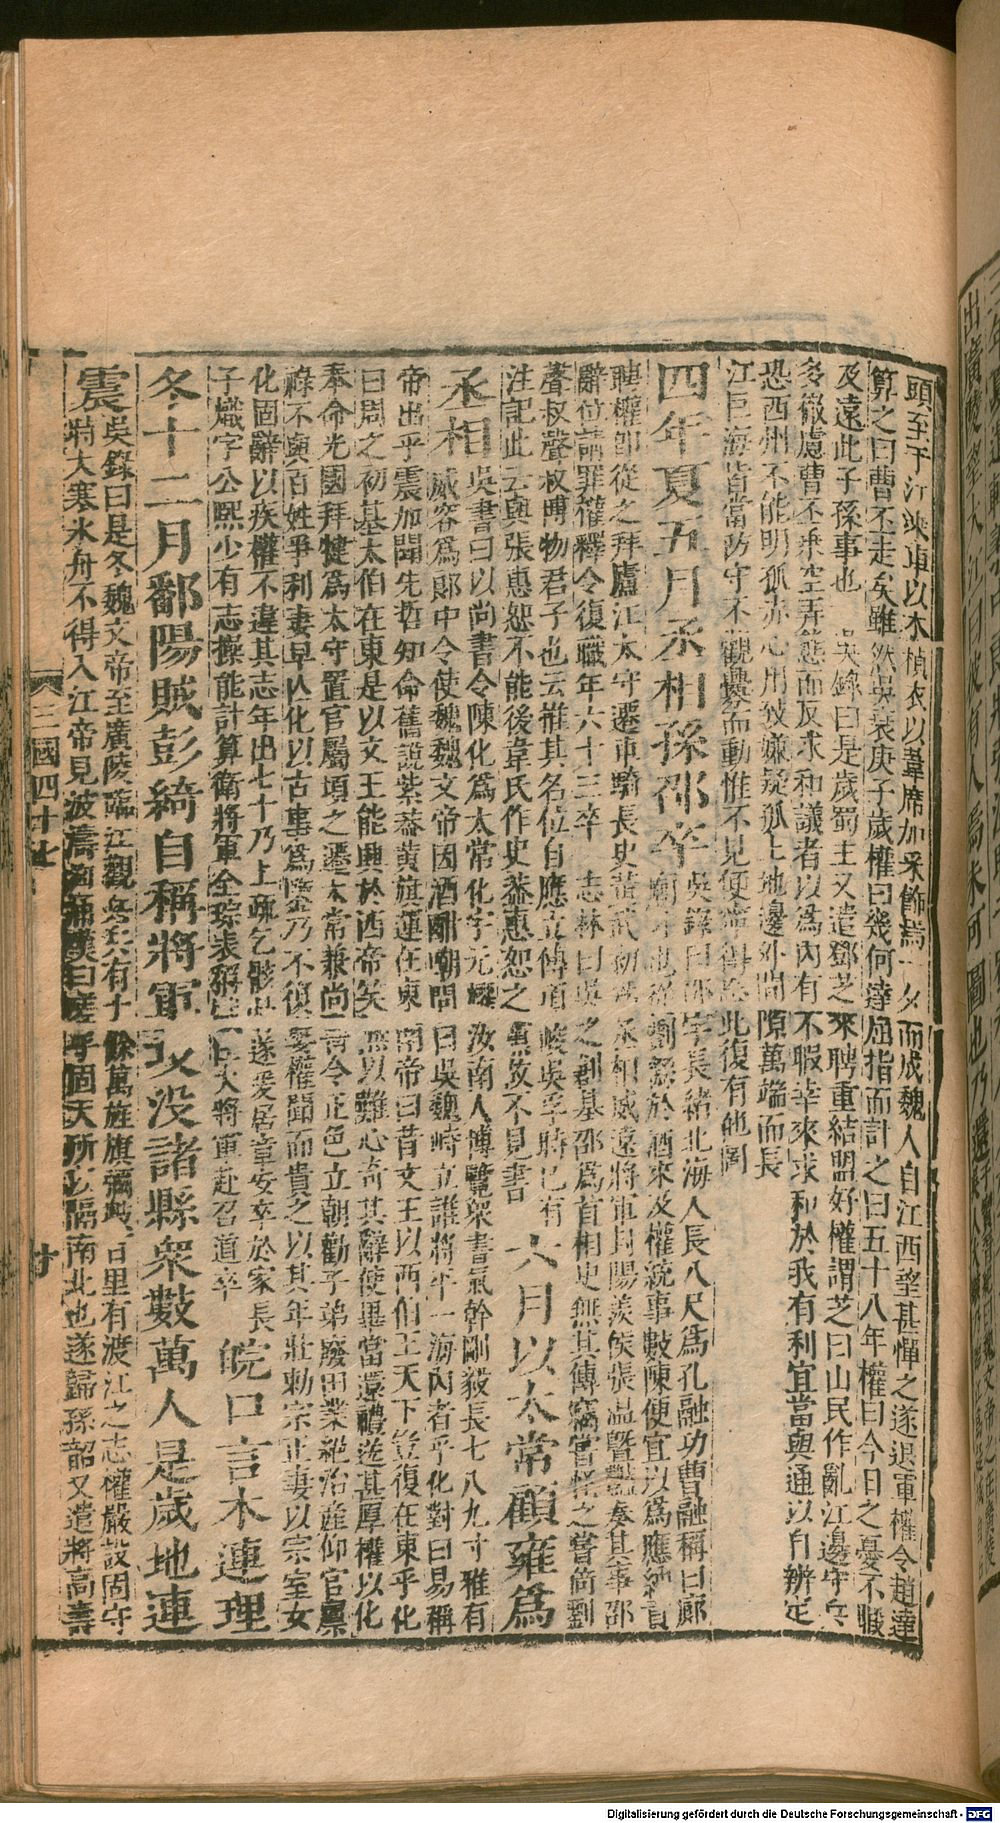 頭至于江乘車以木楨衣以葦席加采飾焉一夕而成魏人自江西望甚憚之遂退軍權令趙達
算之曰曹丕走矣雖然吳衰庚子歲權曰幾何達屈指而計之曰五十八年權曰今日之憂不暇
及遠此子孫事也 吳錄曰是歲蜀主又遣鄧芝來聘重結盟好權謂芝曰山民作亂江邊守兵
多徹慮曹丕乘空弄態而反求和議者以爲內有不暇幸來求和於我有利宜當與通以自辨定
恐西州不能明孤赤心用致嫌疑孤土地邊外間隙萬端而長
江巨海皆當防守丕觀釁而動惟不見便寧得忘此復有他圖
四年夏五月丞相孫邵卒
吳錄曰邵字長緒北海人長八尺爲孔融功曹融稱曰廊
廟才也從劉繇於江東及權統事數陳便宜以爲應納貢
聘權卽從之拜廬江太守遷車騎長史黃武初爲丞相威遠將軍封陽羨侯張溫暨豔奏其事邵
辭位請罪權釋令復職年六十三卒 志林曰吳之創基邵爲首相史無其傳竊嘗怪之嘗問劉
聲叔聲叔博物君子也云推其名位自應立傳項峻吳孚時已有
注記此云與張惠恕不能後韋氏作史蓋惠恕之黨故不見書
六月以太常顧雍爲
丞相
吳書曰以尚書令陳化爲太常化字元耀汝南人博覽衆書氣幹剛毅長七八九寸雅有
威容爲郎中令使魏魏文帝因酒酣嘲問曰吳魏峙立誰將平一海內者乎化對曰易稱
帝出乎震加聞先哲知命舊說紫蓋黃旗運在東南帝曰昔文王以西伯王天下豈復在東乎化
曰周之初基太伯在東是以文王能興於西帝笑無以難心奇其辭使畢當還禮送甚厚權以化
奉命光國拜犍爲太守置官屬頃之遷太常兼尚書令正色立朝勸子弟廢田業絕治產仰官廩
祿不與百姓爭利妻早亡化以古事爲鑒乃不復娶權聞而貴之以其年壯勅宗正妻以宗室女
化固辭以疾權不違其志年出七十乃上疏乞骸骨遂爰居章安卒於家長
子熾字公熙少有志操能計算衛將軍全琮表稱熾任大將軍赴召道卒
皖口言木連理
冬十二月鄱陽賊彭綺自稱將軍攻没諸縣衆數萬人是歲地連
震
吳錄曰是冬魏文帝至廣陵臨江觀兵兵有十餘萬旌旗彌數百里有渡江之志權嚴設固守
時大寒冰舟不得入江帝見波濤洶涌歎曰嗟乎固天所以隔南北也遂歸孫韶又遣將高壽
三國四十七
Digitalisierung gefördert durch die Deutsche Forschungsgemeinschaft - DFG